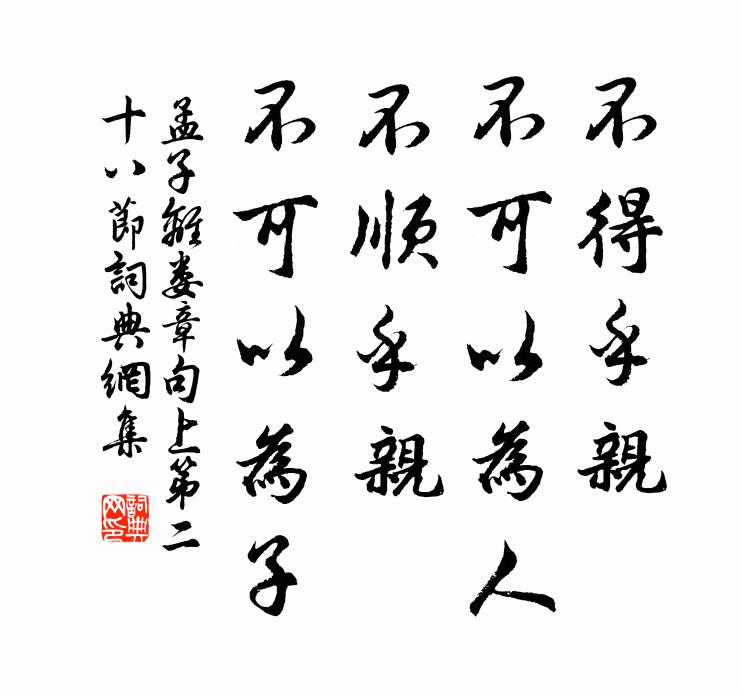 不得乎親
不可以為人
不順乎親
不可以為子
孟子離婁章句上第二
十八節詞典網集
詞典
网印